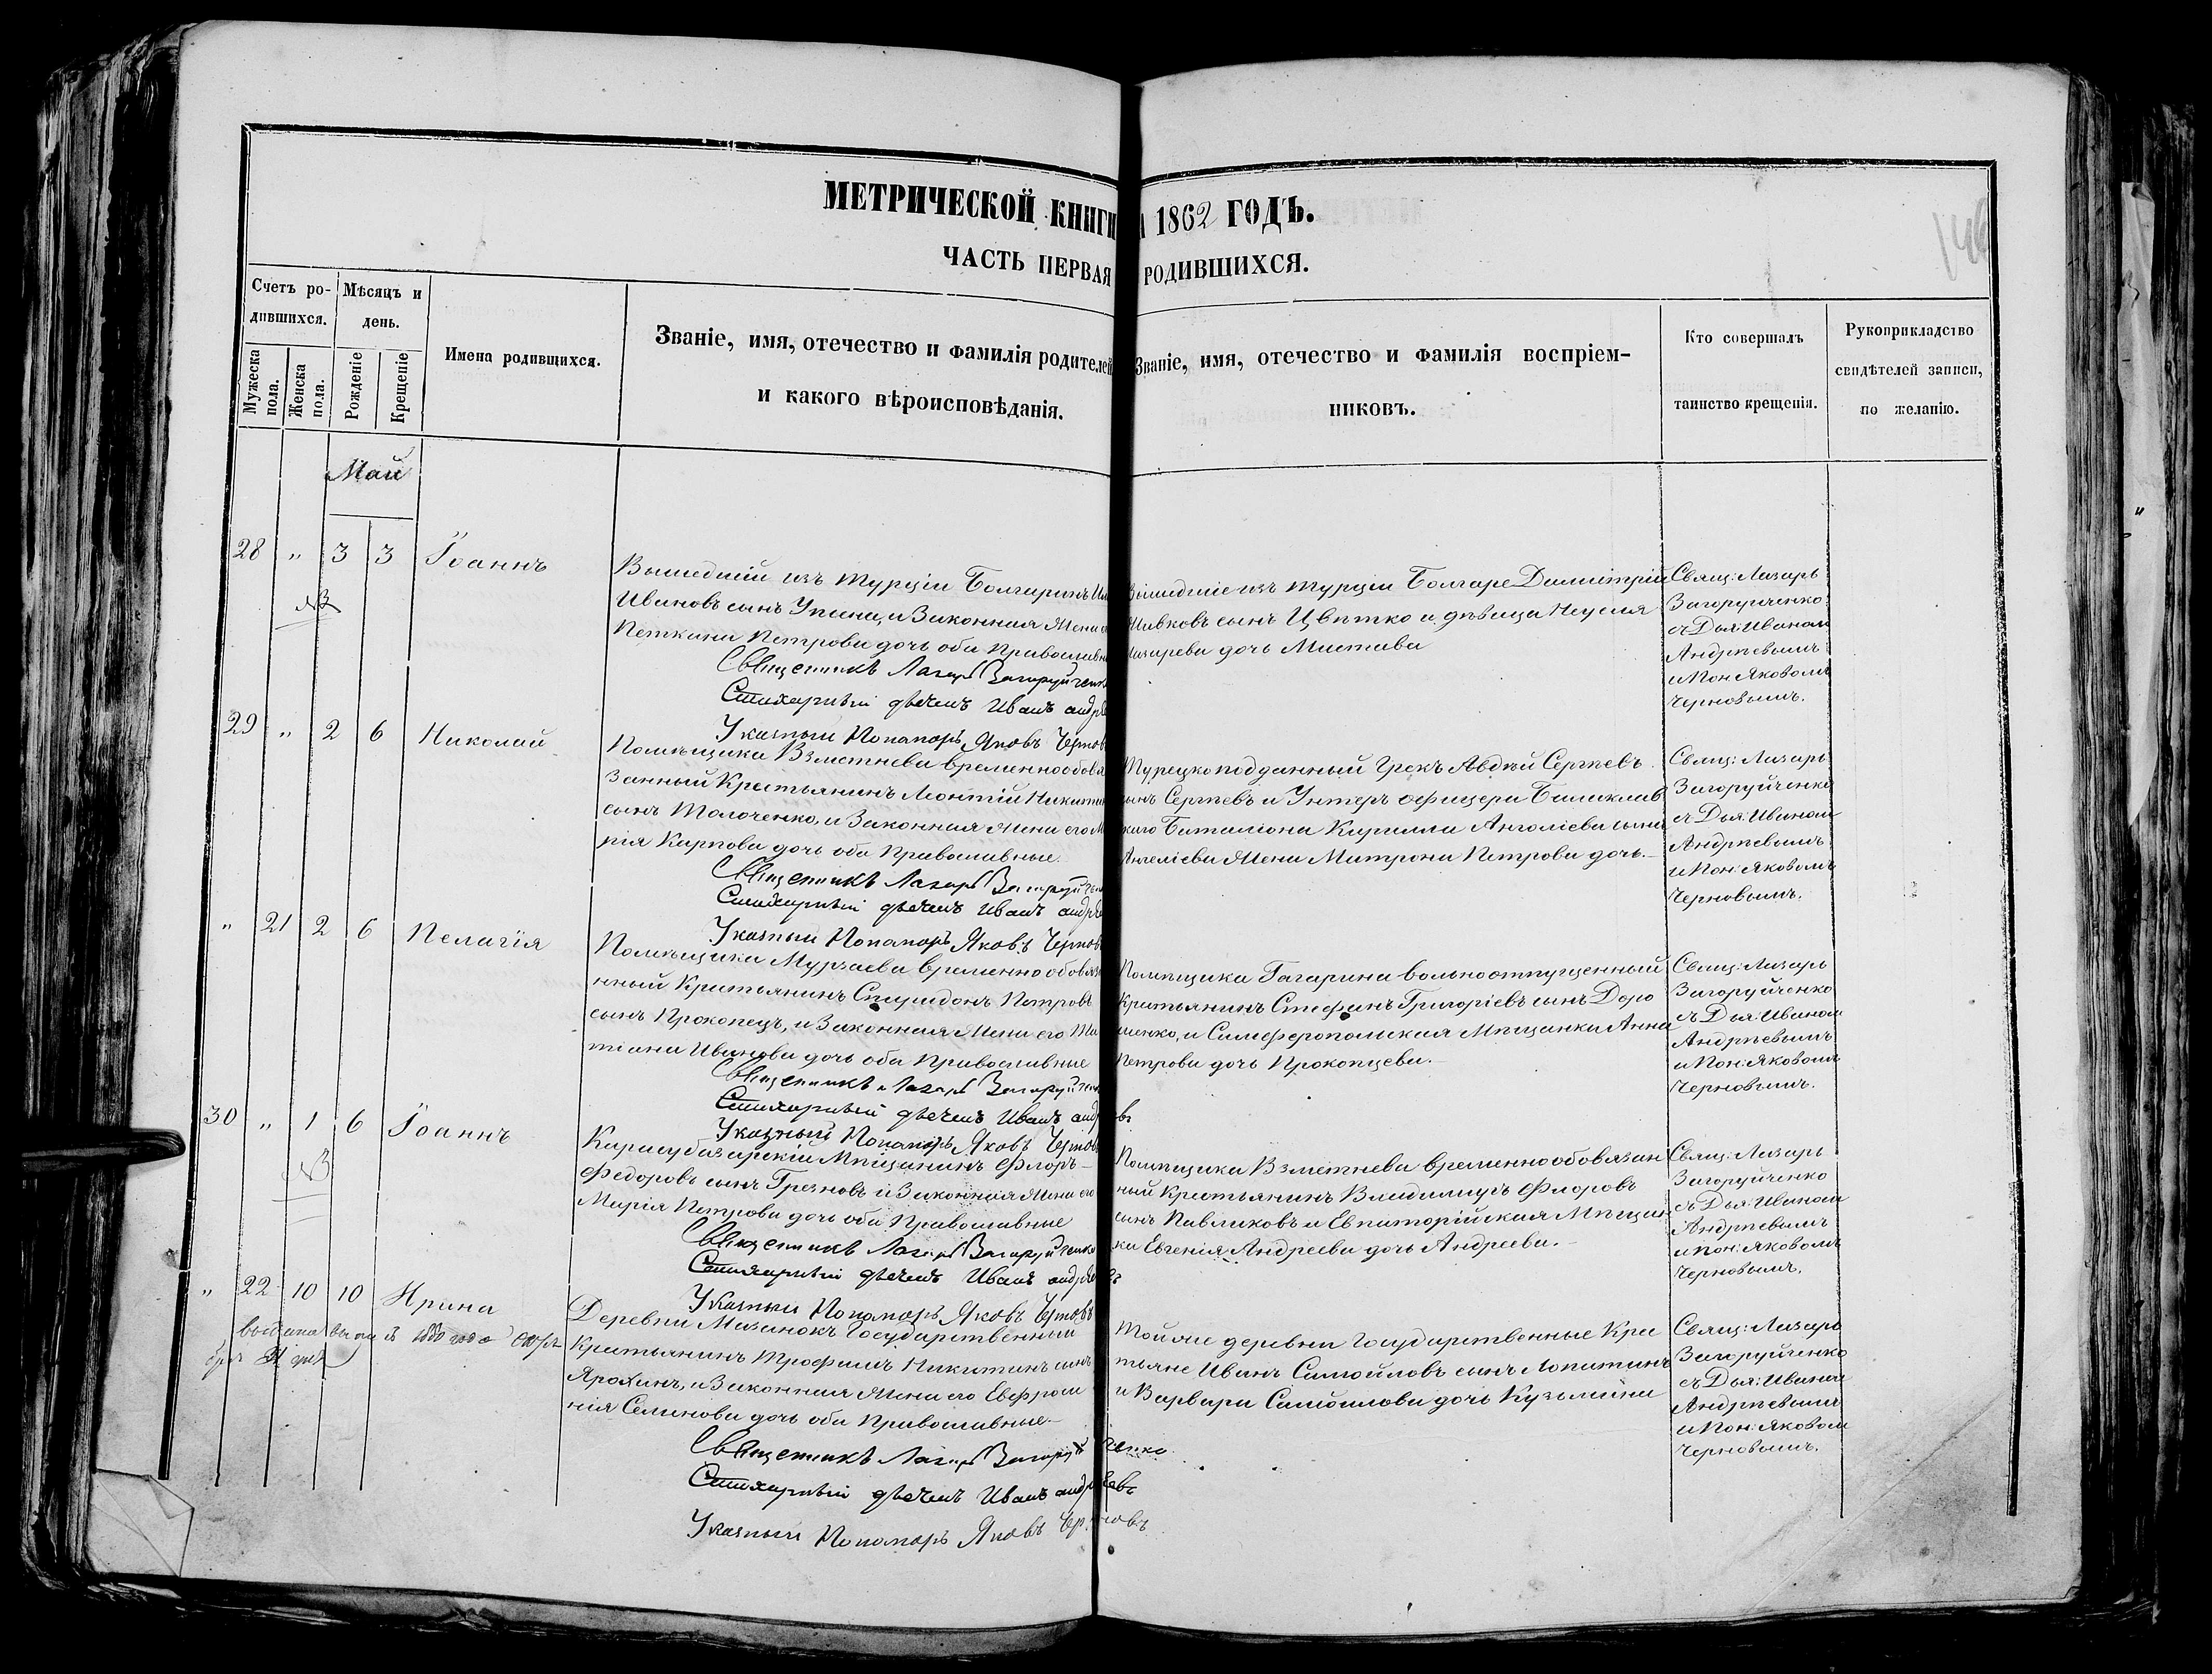 МЕТРИЧЕСКОЙ КНИГИ
1862 ГОДЪ.
ЧАСТЬ ПЕРВАЯ
РОДИВШИХСЯ.
Счетъ ро-
дившихся.
Мѣсяцъ и
день.
Мужеска
пола.
Женска
пола.
Рожденіе
Крещеніе
Имена родившихся.
Званіе, имя, отечество и фамилія родителей
и какого вѣроисповѣданія.
Званіе, имя, отечество и фамилія воспріем-
никовъ.
Кто совершалъ
таинство крещенія.
Рукоприкладство
свидѣтелей записи,
по желанію.
Май
28 " 3 3 Іоаннъ
Вышедшій изъ Турціи Болгаринъ
Ивановъ сынъ и Законная Жена
Петкана Петрова дочь оба Православн
Священникъ Лазарь Загоруйченк
Стихарный дьячекъ Иванъ Андре
Указный Понамарь Яковъ Чернов
Вышедшіе изъ Турціи Болгаре Димитрій
Живковъ сынъ Цвѣтко и дѣвица
Лазарева дочь
Свящ: Лазарь
Загоруйченко
съ Дья: Иваном
Андрѣевымъ
и Пон: Яковомъ
Черновымъ.
29 " 2 6 Николай
Помѣщика Взметнева временнообов
занный Крестьянинъ Леонтій Никитин
сынъ Толоченко, и Законная Жена его М
рія Карпова дочь оба Православные.
Священникъ Лазарь Загоруйчен
Стихарный дьячекъ Иванъ Андре
Указный Понамарь Яковъ Чернов
Турецкоподданный Грекъ Авдѣй Сергѣевъ
сынъ Сергѣевъ и Унтеръ офицера Балаклав
каго Баталіона Кирилла Ангеліева сына
Ангеліева Жена Матрона Петрова дочь.–
Свящ: Лазарь
Загоруйченко
съ Дья: Иваном
Андрѣевымъ
и Пон: Яковомъ
Черновымъ.
" 21 2 6 Пелагія
Помѣщика Мурзаева временнообовяз
нный Крестьянинъ Спиридонъ Петровъ
сынъ Прокопецъ, и Законная Жена его Та
тіана Иванова дочь оба Православные
Священникъ Лазарь Загоруйчен
Стихарный дьячекъ Иванъ Андр въ
Указный Понамарь Яковъ Чернов
Помѣщика Гагарина вольноотпущенный
Крестьянинъ Стефанъ Григоріевъ сынъ Доро
шенко, и Симферопольская Мѣщанка Анна
Петрова дочь Прокопцева.–
Свящ: Лазарь
Загоруйченко
съ Дья: Иваном
Андрѣевымъ
и Пон: Яковомъ
Черновымъ.
30 " 1 6 Іоаннъ
Карасубазарскій Мѣщанинъ Флоръ–
Федоровъ сынъ Грезновъ и Законная Жена его
Марія Петрова дочь оба Православные
Священникъ Лазарь Загоруйченко
Стихарный дьячекъ Иванъ Андрѣе въ
Указный Понамарь Яковъ Черновъ
Помѣщика Взметнева временнообовязан
ный Крестьянинъ Владимиръ Флоровъ
сынъ Павликовъ и Евпаторійская Мѣщан
ка Евгенія Андреева дочь Андреева.–
Свящ: Лазарь
Загоруйченко
съ Дья: Иваном
Андрѣевымъ
и Пон: Яковомъ
Черновымъ.
" 22 10 10 Ирина
1880 года
Деревни Мазанокъ Государственный
Крестьянинъ Трофимъ Никитинъ сынъ
Ярохинъ, и Законная Жена его Евфроси
нія Семенова дочь оба Православные–
Священникъ Лазарь Загоруй ченко
Стихарный дьячекъ Иванъ Андр еевъ
Указный Понамарь Яковъ Чер новъ
Той же деревни Государственные Кре
тьяне Иванъ Самойловъ сынъ Лопатинъ
и Варвара Самойлова дочь Кузьмина
Свящ: Лазарь
Загоруйченко
съ Дья: Иваном
Андрѣевымъ
и Пон: Яковом
Черновымъ.